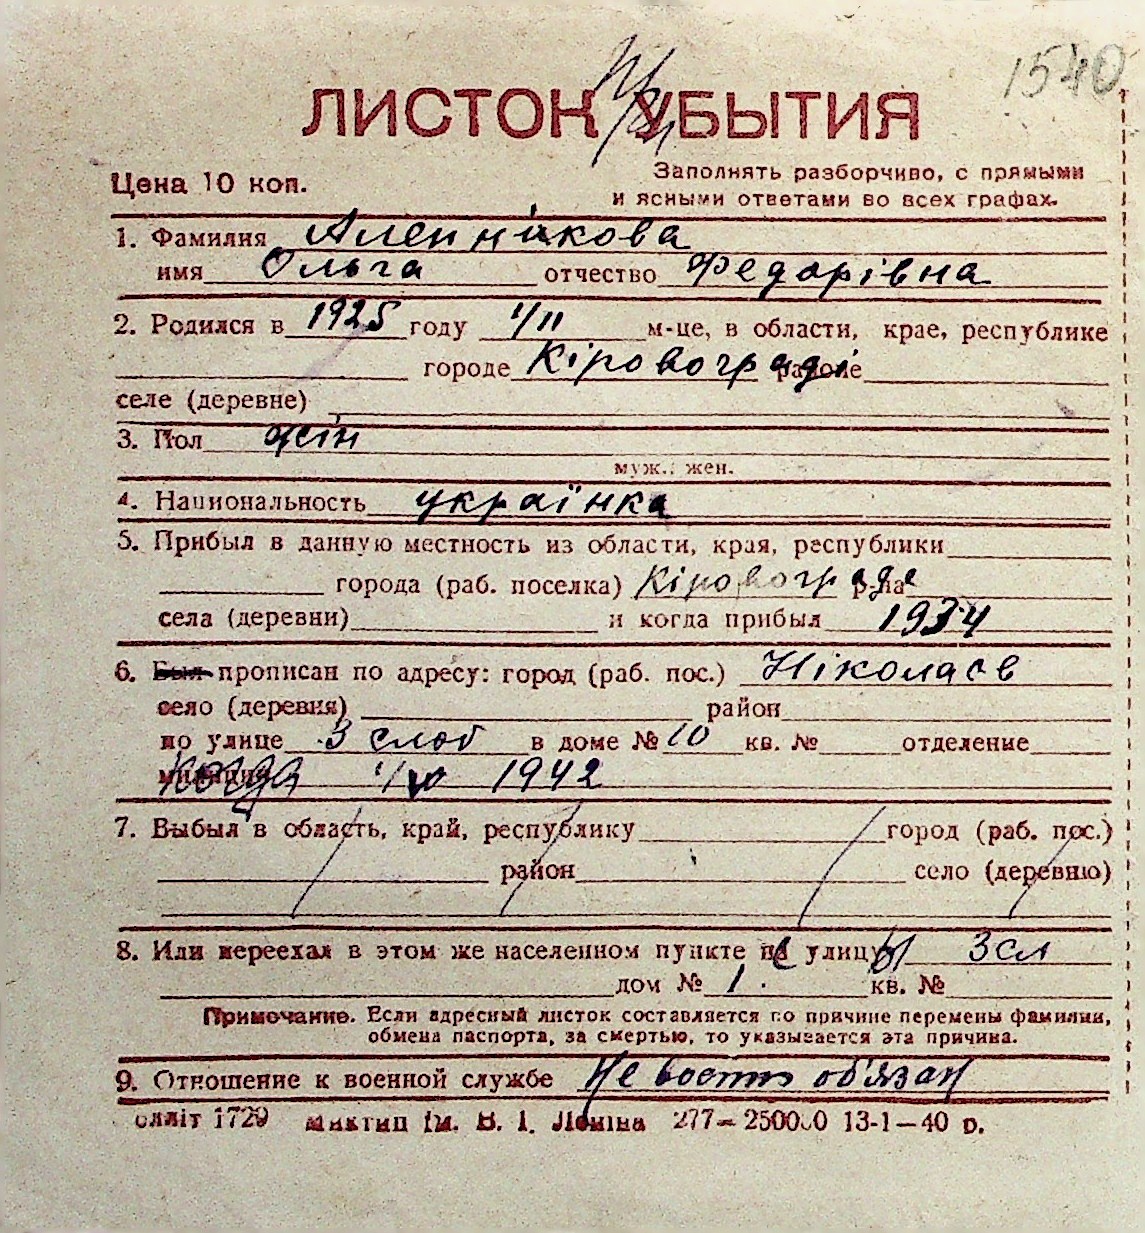 1540
ЛИСТОК УБЫТИЯ
Цена 10 коп.
Заполнять разборчиво, с прямыми
и ясными ответами во всех графах.
1. Фамилия Алейникова
имя Ольга отчество Федорівна
2. Родился в 1925 году 1/II м-це, в области, крае, республике
городе Кіровограді районе
селе (деревне)
3. Пол жін
муж.: жен.
4. Национальность українка
5. Прибыл в данную местность из области, края, республики
города (раб. поселка) Кіровограда р-на
села (деревни) и когда прибыл 1934
6. Был прописан по адресу: город (раб. пос.) Ніколаєв
село (деревня) район
по улице 3 слоб в доме № 10 кв. № отделение
когда 1942
7. Выбыл в область, край, республику город (раб. пос.)
район село (деревню)
8. Или переехал в этом же населенном пункте улицы 3 сл
дом № 1. кв. №
Примечание. Если адресный листок составляется по причине перемены фамилии,
обмена паспорта, за смертью, то указывается эта причина.
9. Отношение к военной службе Не воен обязан
1729 ім. В. І. Леніна 277— 250000 13-1—40 р.